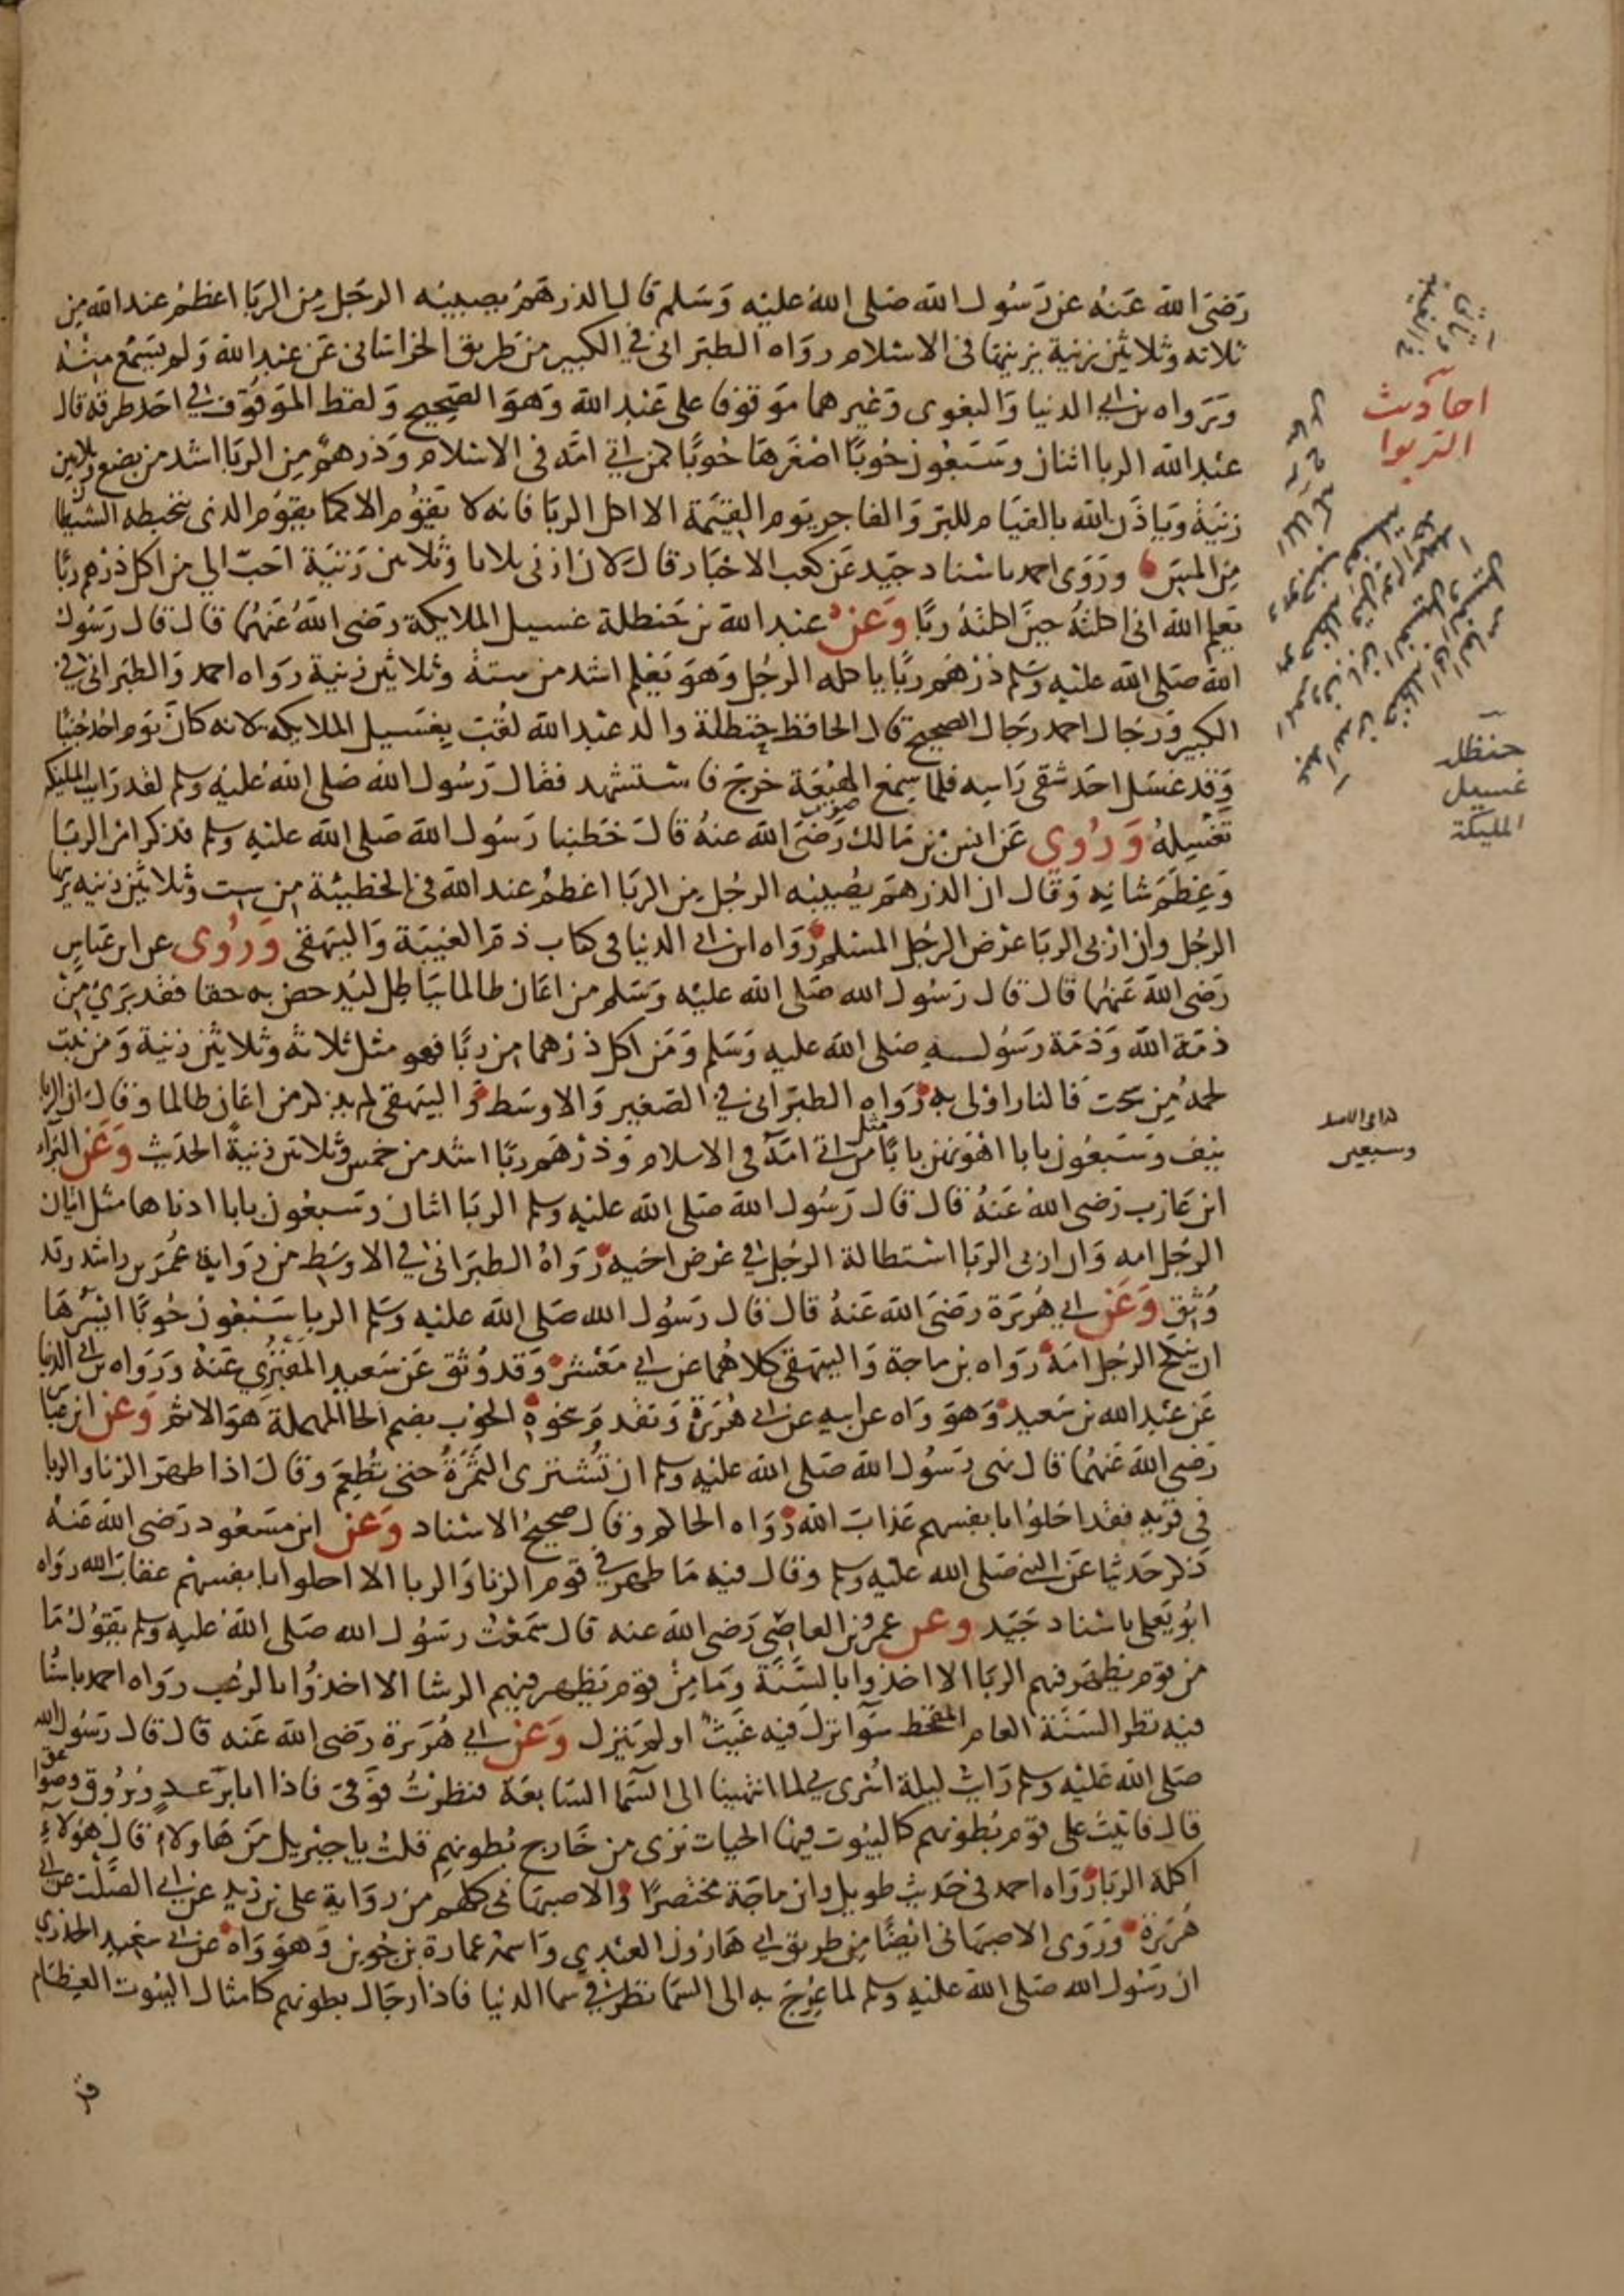 رضي الله عنه عن رسول الله صلى الله عليه وسلم قال الدرهم يصيبه الرجل من الربا اعظم عند الله من
ثلاثة وثلاثين زنية يزنيها في الاسلام رواه الطبراني في الكبير من طريق الخراساني عن عبد الله ولم يسمع منه
ورواه بن ابي الدنيا والبغوي وغيرهما موقوفا على عبد الله وهو الصحيح ولفظ الموقوف في احد طرقه قال
عبد الله الربا اثنان وسبعون حوبا اصغرها حوبا كمن اتى امه في الاسلام ودرهم من الربا اشد من بضع وثلاثين
زنية وياذن الله بالقيام للبر والفاجر يوم القيمة الا اكل الربا فانه لا يقوم الا كما يقوم الذي يتخبطه الشيطان
من المس وروى احمد باسناد جيد عن كعب الاحبار قال لان ازني ثلاثا وثلاثين زنية احب الي من اكل درهم ربا
يعلم الله اني اكلته حين اكلته ربا وعن عبد الله بن حنظلة غسيل الملايكة رضي الله عنهما قال قال رسول
الله صلى الله عليه وسلم درهم ربا ياكله الرجل وهو يعلم اشد من ستة وثلاثين زنية رواه احمد والطبراني في
الكبير ورجال احمد رجال الصحيح قال الحافظ حنظلة والد عبد الله لقب بغسيل الملايكة لانه كان يوم احد جنبا
وقد غسل احد شقي راسه فلما سمع الهيعة خرج فاستشهد فقال رسول الله صلى الله عليه وسلم لقد رايت المليكة
تغسله وروي عن انس بن مالك رضي الله عنه قال خطبنا رسول الله صلى الله عليه وسلم فذكر امر الربا
وعظم شانه وقال ان الدرهم يصيبه الرجل من الربا اعظم عند الله في الخطيئة من ست وثلاثين زنيه يزنيها
الرجل وان اربى الربا عرض الرجل المسلم رواه ابن ابي الدنيا في كتاب ذم الغيبة والبيهقي وروي عن ابن عباس
رضي الله عنهما قال قال رسول الله صلى الله عليه وسلم من اعان ظالما بباطل ليدحض به حقا فقد بري من
ذمة الله وذمة رسوله صلى الله عليه وسلم ومن اكل درهما من ربا فهو مثل ثلاثة وثلاثين زنية ومن نبت
لحمه من سحت فالنار اولى به رواه الطبراني في الصغير والاوسط والبيهقي لم يذكر من اعان ظالما وقال ان الربا
نيف وسبعون بابا اهونهن بابا مثل من اتى امه في الاسلام ودرهم ربا اشد من خمس وثلاثين زنية الحديث وعن البراء
ابن عازب رضي الله عنه قال قال رسول الله صلى الله عليه وسلم الربا اثنان وسبعون بابا ادناها مثل اتيان
الرجل امه وان اربى الربا استطالة الرجل في عرض اخيه رواه الطبراني في الاوسط من رواية عمر بن راشد وقد
وثق وعن ابي هريرة رضي الله عنه قال قال رسول الله صلى الله عليه وسلم الربا سبعون حوبا ايسرها
ان ينكح الرجل امه رواه بن ماجة والبيهقي كلاهما عن ابي معشر وقد وثق عن سعيد المقبري عنه ورواه بن ابي الدنيا
عن عبد الله بن سعيد وهو واه عن ابيه عن ابي هريرة وتقدم نحوه الحوب بضم الحا المهملة هو الاثم وعن ابن عباس
رضي الله عنهما قال نهى رسول الله صلى الله عليه وسلم ان تشترى الثمرة حتى تطعم وقال اذا ظهر الزنا والربا
في قرية فقد احلوا بانفسهم عذاب الله رواه الحاكم وقال صحيح الاسناد وعن ابن مسعود رضي الله عنه
ذكر حديثا عن النبي صلى الله عليه وسلم وقال فيه ما ظهر في قوم الزنا والربا الا احلوا بانفسهم عقاب الله رواه
ابو يعلى باسناد جيد وعن عمرو بن العاصي رضي الله عنه قال سمعت رسول الله صلى الله عليه وسلم يقول ما
من قوم يظهر فيهم الربا الا اخذوا بالسنة وما من قوم يظهر فيهم الرشا الا اخذوا بالرعب رواه احمد باسناد
فيه نظر السنة العام المقحط سوآ نزل فيه غيث او لم ينزل وعن ابي هريرة رضي الله عنه قال قال رسول الله
صلى الله عليه وسلم رايت ليلة اسري بي لما انتهينا الى السما السابعة فنظرت فوقي فاذا انا برعد وبروق وصواعق
قال فاتيت على قوم بطونهم كالبيوت فيها الحيات ترى من خارج بطونهم قلت يا جبريل من هاولاء قال هؤلاء
اكلة الربا رواه احمد في حديث طويل وابن ماجة مختصرا والاصبهاني كلهم من رواية علي بن زيد عن ابي الصلت عن ابي
هريرة وروى الاصبهاني ايضا من طريق ابي هارون العبدي واسمه عمارة بن جوين وهو واه عن ابي سعيد الخدري
ان رسول الله صلى الله عليه وسلم لما عرج به الى السما نظر في سما الدنيا فاذا رجال بطونهم كامثال البيوت العظام
احاديث
الربوا
حنظلة
غسيل
المليكة
وسبعين